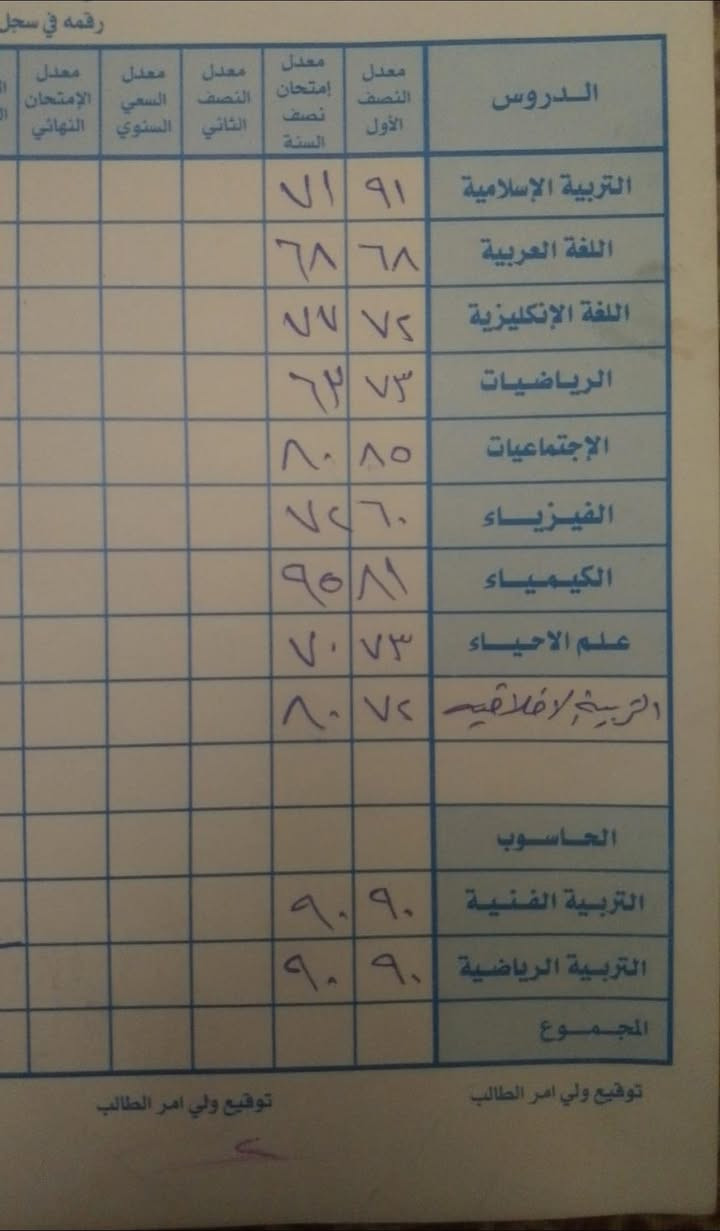 رقمه في سجل
الـدروس معدل النصف الأول معدل إمتحان نصف السنة معدل النصف الثاني معدل السعي السنوي معدل الإمتحان النهائي
التربية الإسلامية ٩١ ٧١
اللغة العربية ٦٨ ٦٨
اللغة الإنكليزية ٧٢ ٧٧
الرياضيات ٧٣ ٦٣
الإجتماعيات ٨٥ ٨٠
الفيزياء ٦٠ ٧٢
الكيمياء ٨١ ٩٥
علم الاحياء ٧٣ ٧٠
التربية الاخلاقيه ٧٢ ٨٠
الحاسوب
التربية الفنية ٩٠ ٩٠
التربية الرياضية ٩٠ ٩٠
المجموع
توقيع ولي امر الطالب توقيع ولي امر الطالب